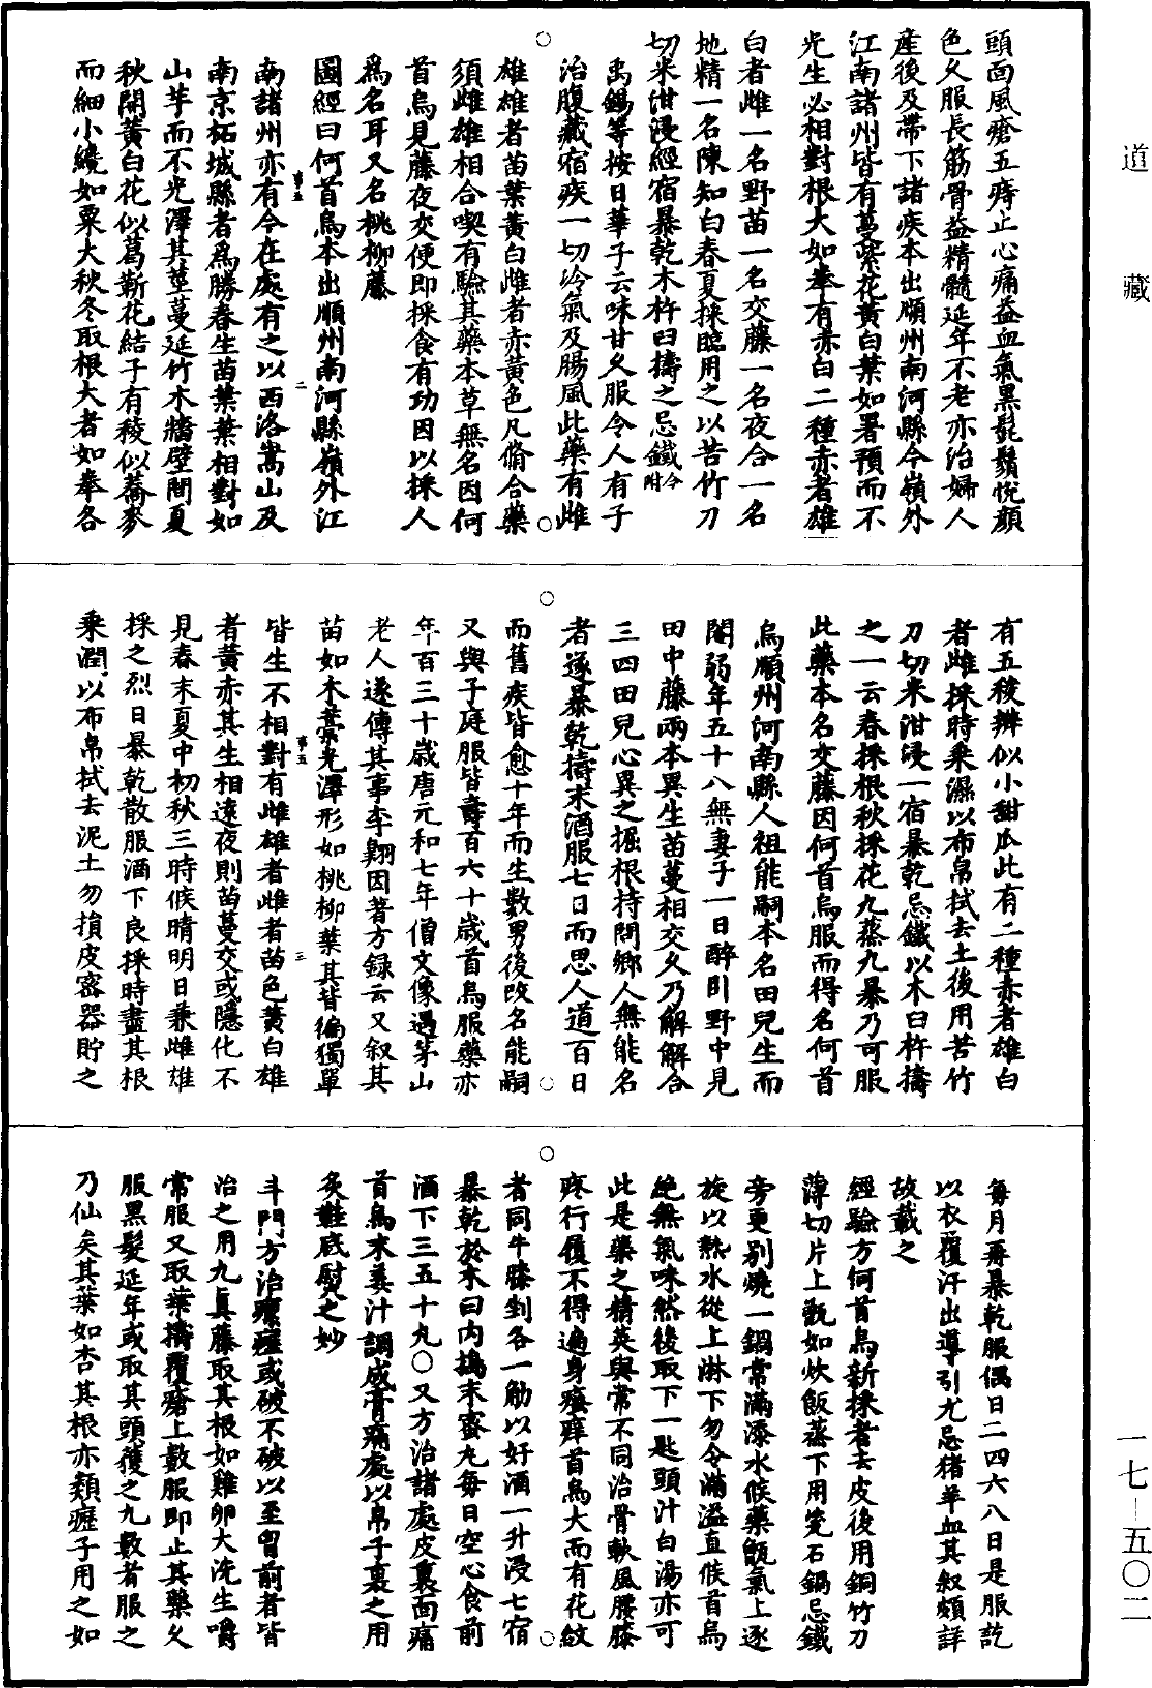 道藏
一七—五〇二
頭面風瘡五痔止心痛益血氣黑髭鬚悅顏
色久服長筋骨益精髓延年不老亦治婦人
産後及帶下諸疾本出順州南河縣今嶺外
江南諸州皆有蔓紫花黃白葉如署預而不
光生必相對根大如拳有赤白二種赤者雄
白者雌一名野苗一名交藤一名夜合一名
地精一名陳知白春夏採臨用之以苦竹刀
切米泔浸經宿暴乾木杵臼擣之忌鐵今附
禹錫等按日華子云味甘久服令人有子
治腹藏宿疾一切冷氣及腸風此藥有雌
雄雄者苗葉黃白雌者赤黃色凡脩合藥
須雌雄相合喫有驗其藥本草無名因何
首烏見藤夜交便即採食有功因以採人
爲名耳又名桃柳藤
圖經曰何首烏本出順州南河縣嶺外江
南諸州亦有今在處有之以西洛嵩山及
南京柘城縣者爲勝春生苗葉葉相對如
山芋而不光澤其莖蔓延竹木牆壁間夏
秋開黃白花似葛勒花結子有稜似蕎麥
而細小纔如粟大秋冬取根大者如拳各
有五稜瓣似小甜瓜此有二種赤者雄白
者雌採時乘濕以布帛拭去土後用苦竹
刀切米泔浸一宿暴乾忌鐵以木臼杵擣
之一云春採根秋採花九蒸九暴乃可服
此藥本名交藤因何首烏服而得名何首
烏順州河南縣人祖能嗣本名田兒生而
閹弱年五十八無妻子一日醉臥野中見
田中藤兩本異生苗蔓相交久乃解解合
三四田兒心異之掘根持問鄉人無能名
者遂暴乾擣末酒服七日而思人道百日
而舊疾皆愈十年而生數男後改名能嗣
又與子庭服皆壽百六十歲首烏服藥亦
年百三十歲唐元和七年僧文像遇茅山
老人遂傳其事李翱因著方錄云又叙其
苗如木藁光澤形如桃柳葉其背偏獨單
皆生不相對有雌雄者雌者苗色黃白雄
者黃赤其生相遠夜則苗蔓交或隱化不
見春末夏中初秋三時候晴明日兼雌雄
採之烈日暴乾散服酒下良採時盡其根
乘潤以布帛拭去泥土勿損皮密器貯之
每月再暴乾服偶日二四六八日是服訖
以衣覆汗出導引尤忌猪羊血其叙頗詳
故載之
經驗方何首烏新採者去皮後用銅竹刀
薄切片上甑如炊飯蒸下用瓷石鍋忌鐵
旁更别燒一鍋常滿添水候藥甑氣上逐
旋以熱水從上淋下勿令滿溢直候首烏
絶無氣味然後取下一匙頭汁白湯亦可
此是藥之精英與常不同治骨軟風腰膝
疼行履不得遍身瘙癢首烏大而有花紋
者同牛膝剉各一觔以好酒一升浸七宿
暴乾於木臼内搗末蜜丸每日空心食前
酒下三五十丸〇又方治諸處皮裏面痛
首烏末姜汁調成膏痛處以帛子裹之用
炙鞋底熨之妙
斗門方治瘰癧或破不破以至胷前者皆
治之用九真藤取其根如雞卵大洗生嚼
常服又取葉擣覆瘡上數服即止其藥久
服黑髮延年或取其頭獲之九數者服之
乃仙矣其葉如杏其根亦類癧子用之如